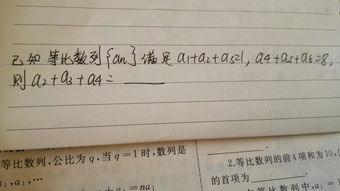 已知等比数列{an}满足a1+a2+a3=1, a4+a5+a6=8,
则a2+a3+a4=____
等比数列,公比为q,当q=1时,数列是
2.等比数列的前4项和为10,
的首项为
= na₁
等比数列中,a₁=1